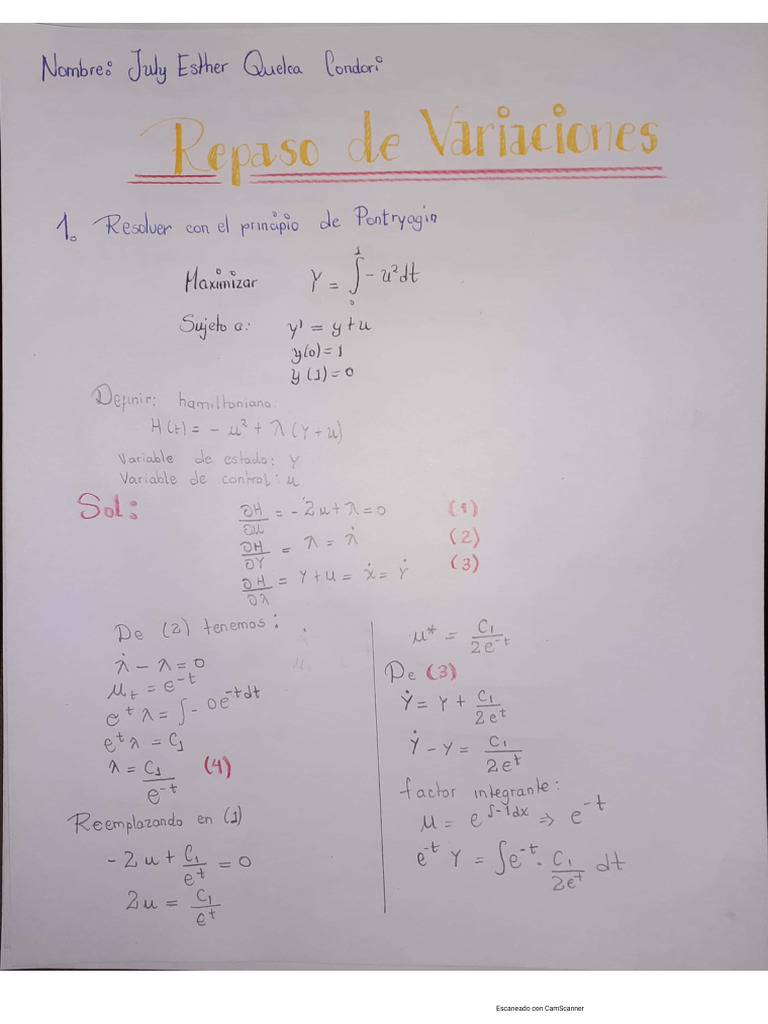 Nombre: July Esther Quelca Condori
Repaso de Variaciones
1. Resolver con el principio de Pontryagin
Maximizar Y = ∫₀¹ - u² dt
Sujeto a: y' = y + u
y(0) = 1
y(1) = 0
Definir: hamiltoniano:
H(t) = - u² + λ (Y + u)
Variable de estado: Y
Variable de control: u
Sol:
∂H/∂u = - 2u + λ = 0 (1)
∂H/∂Y = λ = λ̇ (2)
∂H/∂λ = Y + u = ẋ = Ẏ (3)
De (2) tenemos:
λ̇ - λ = 0
μt = e^-t
e^t λ = ∫ - 0e^-t dt
e^t λ = C₁
λ = C₁/e^-t (4)
Reemplazando en (1)
- 2u + C₁/e^t = 0
2u = C₁/e^t
u* = C₁/2e^-t
De (3)
Ẏ = Y + C₁/2e^t
Ẏ - Y = C₁/2e^t
factor integrante:
μ = e^∫-1dx ⇒ e^-t
e^-t Y = ∫e^-t · C₁/2e^t dt
Escaneado con CamScanner